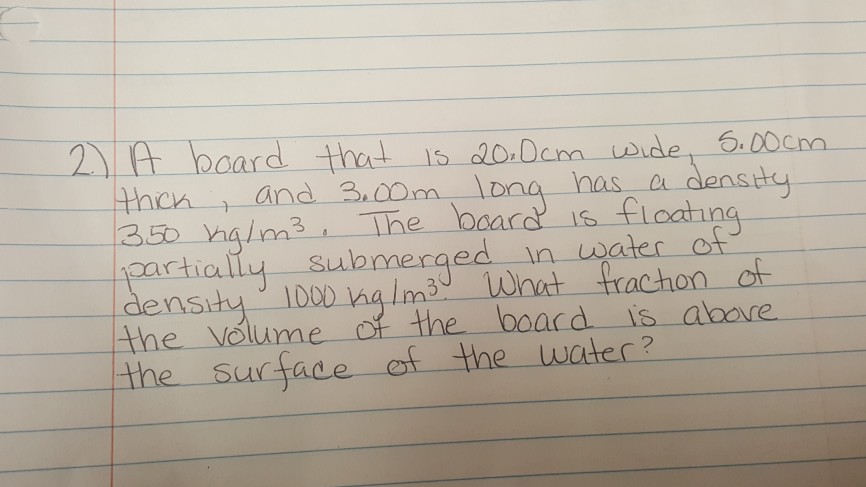 2.) A board that is 20.0cm wide, 5.00cm
thick, and 3.00m long has a density
350 kg/m³. The board is floating
partially submerged in water of
density 1000 kg/m³. What fraction of
the volume of the board is above
the surface of the water?